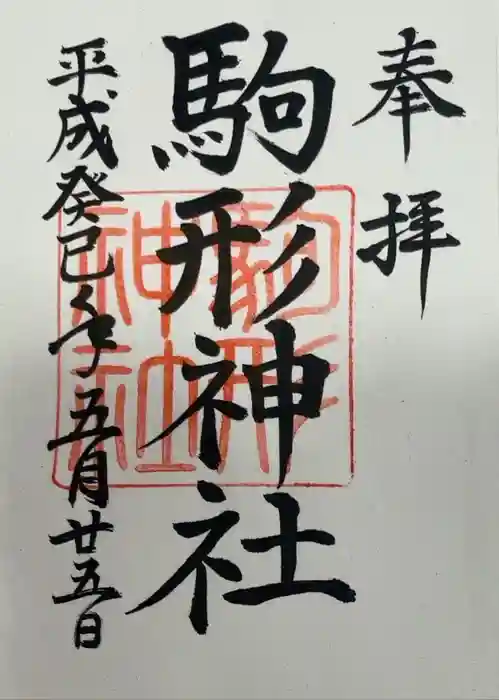 奉拝
駒形神社
平成癸巳年五月廿五日
駒形
神社